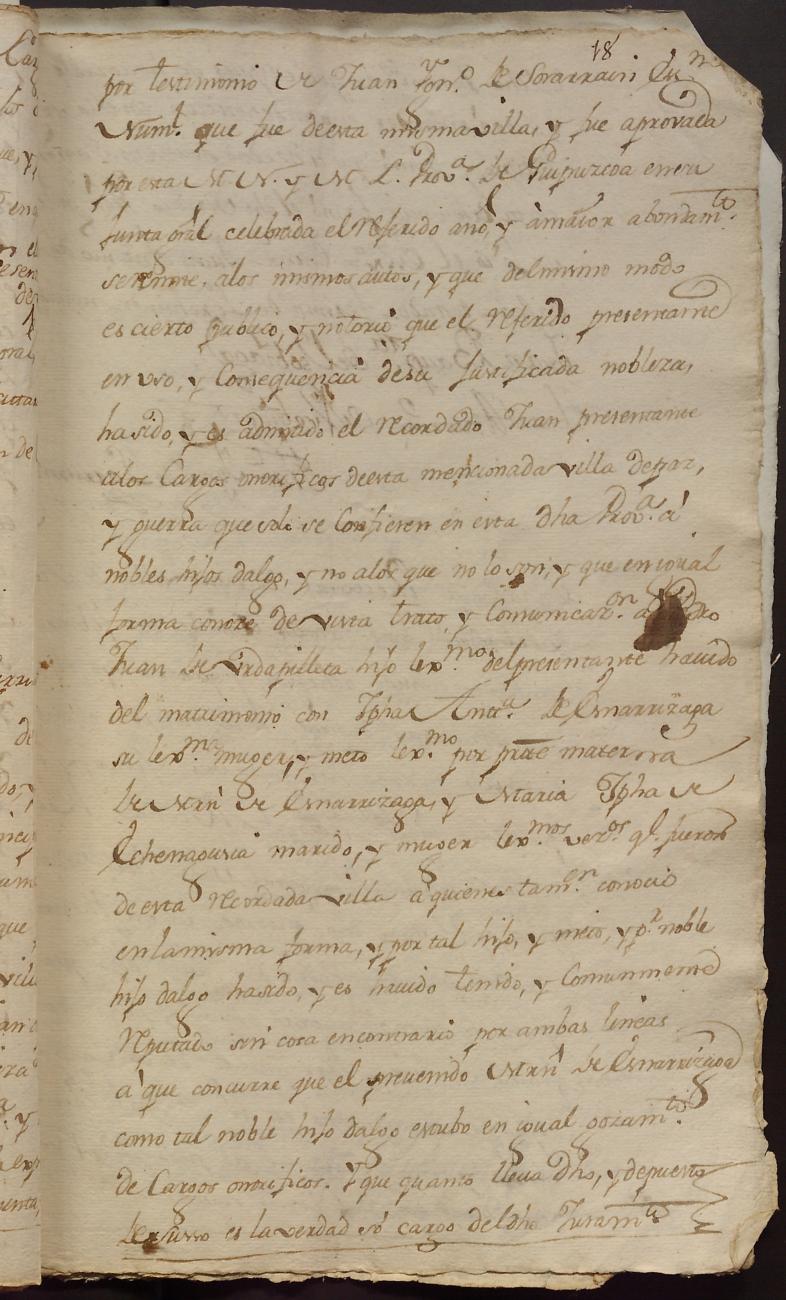 18
por testimonio de Juan Fon.co de Sorarrain Ess.no
Num.l que fue de esta misma villa, y fue aprovada
por esta M. N. y M. L. Prov.a de Guipuzcoa en su
Junta gral celebrada el referido año, y à maior abondam.to
se remite a los mismos autos, y que del mismo modo
es cierto publico, y notorio que el referido presentante
en uso, y Consequencia de su Justificada nobleza,
ha sido, y es admitido el recordado Juan presentante
a los Cargos onorificos de esta mencionada villa de paz,
y guerra que solo se Confieren en esta dha Prov.a à
nobles hijos dalgo, y no a los que no lo son, y que en igual
forma conoce de vista trato y Comunicaz.on a dro
Juan de Urdapilleta hijo lex.mo del presentante havido
del matrimonio con Jpha Ant.a de Esnarrizaga
su lex.ma muger, y nieto lex.mo por parte materna
de Mrn de Esnarrizaga, y Maria Jpha de
Echenagusia marido, y muger lex.mos vez.os q.e fueron
de esta recordada villa à quienes tam.en conocio
en la misma forma, y por tal hijo, y nieto, y p.r noble
hijo dalgo ha sido, y es havido tenido, y Comunmente
reputado sin cosa en contrario por ambas lineas
à que concurre que el prevenido Mrn de Esnarrizaga
como tal noble hijo dalgo estubo en igual gozam.to
de Cargos onorificos. Y que quanto lleva dho, y depuesto
de suso es la verdad só cargo del dho Juram.to